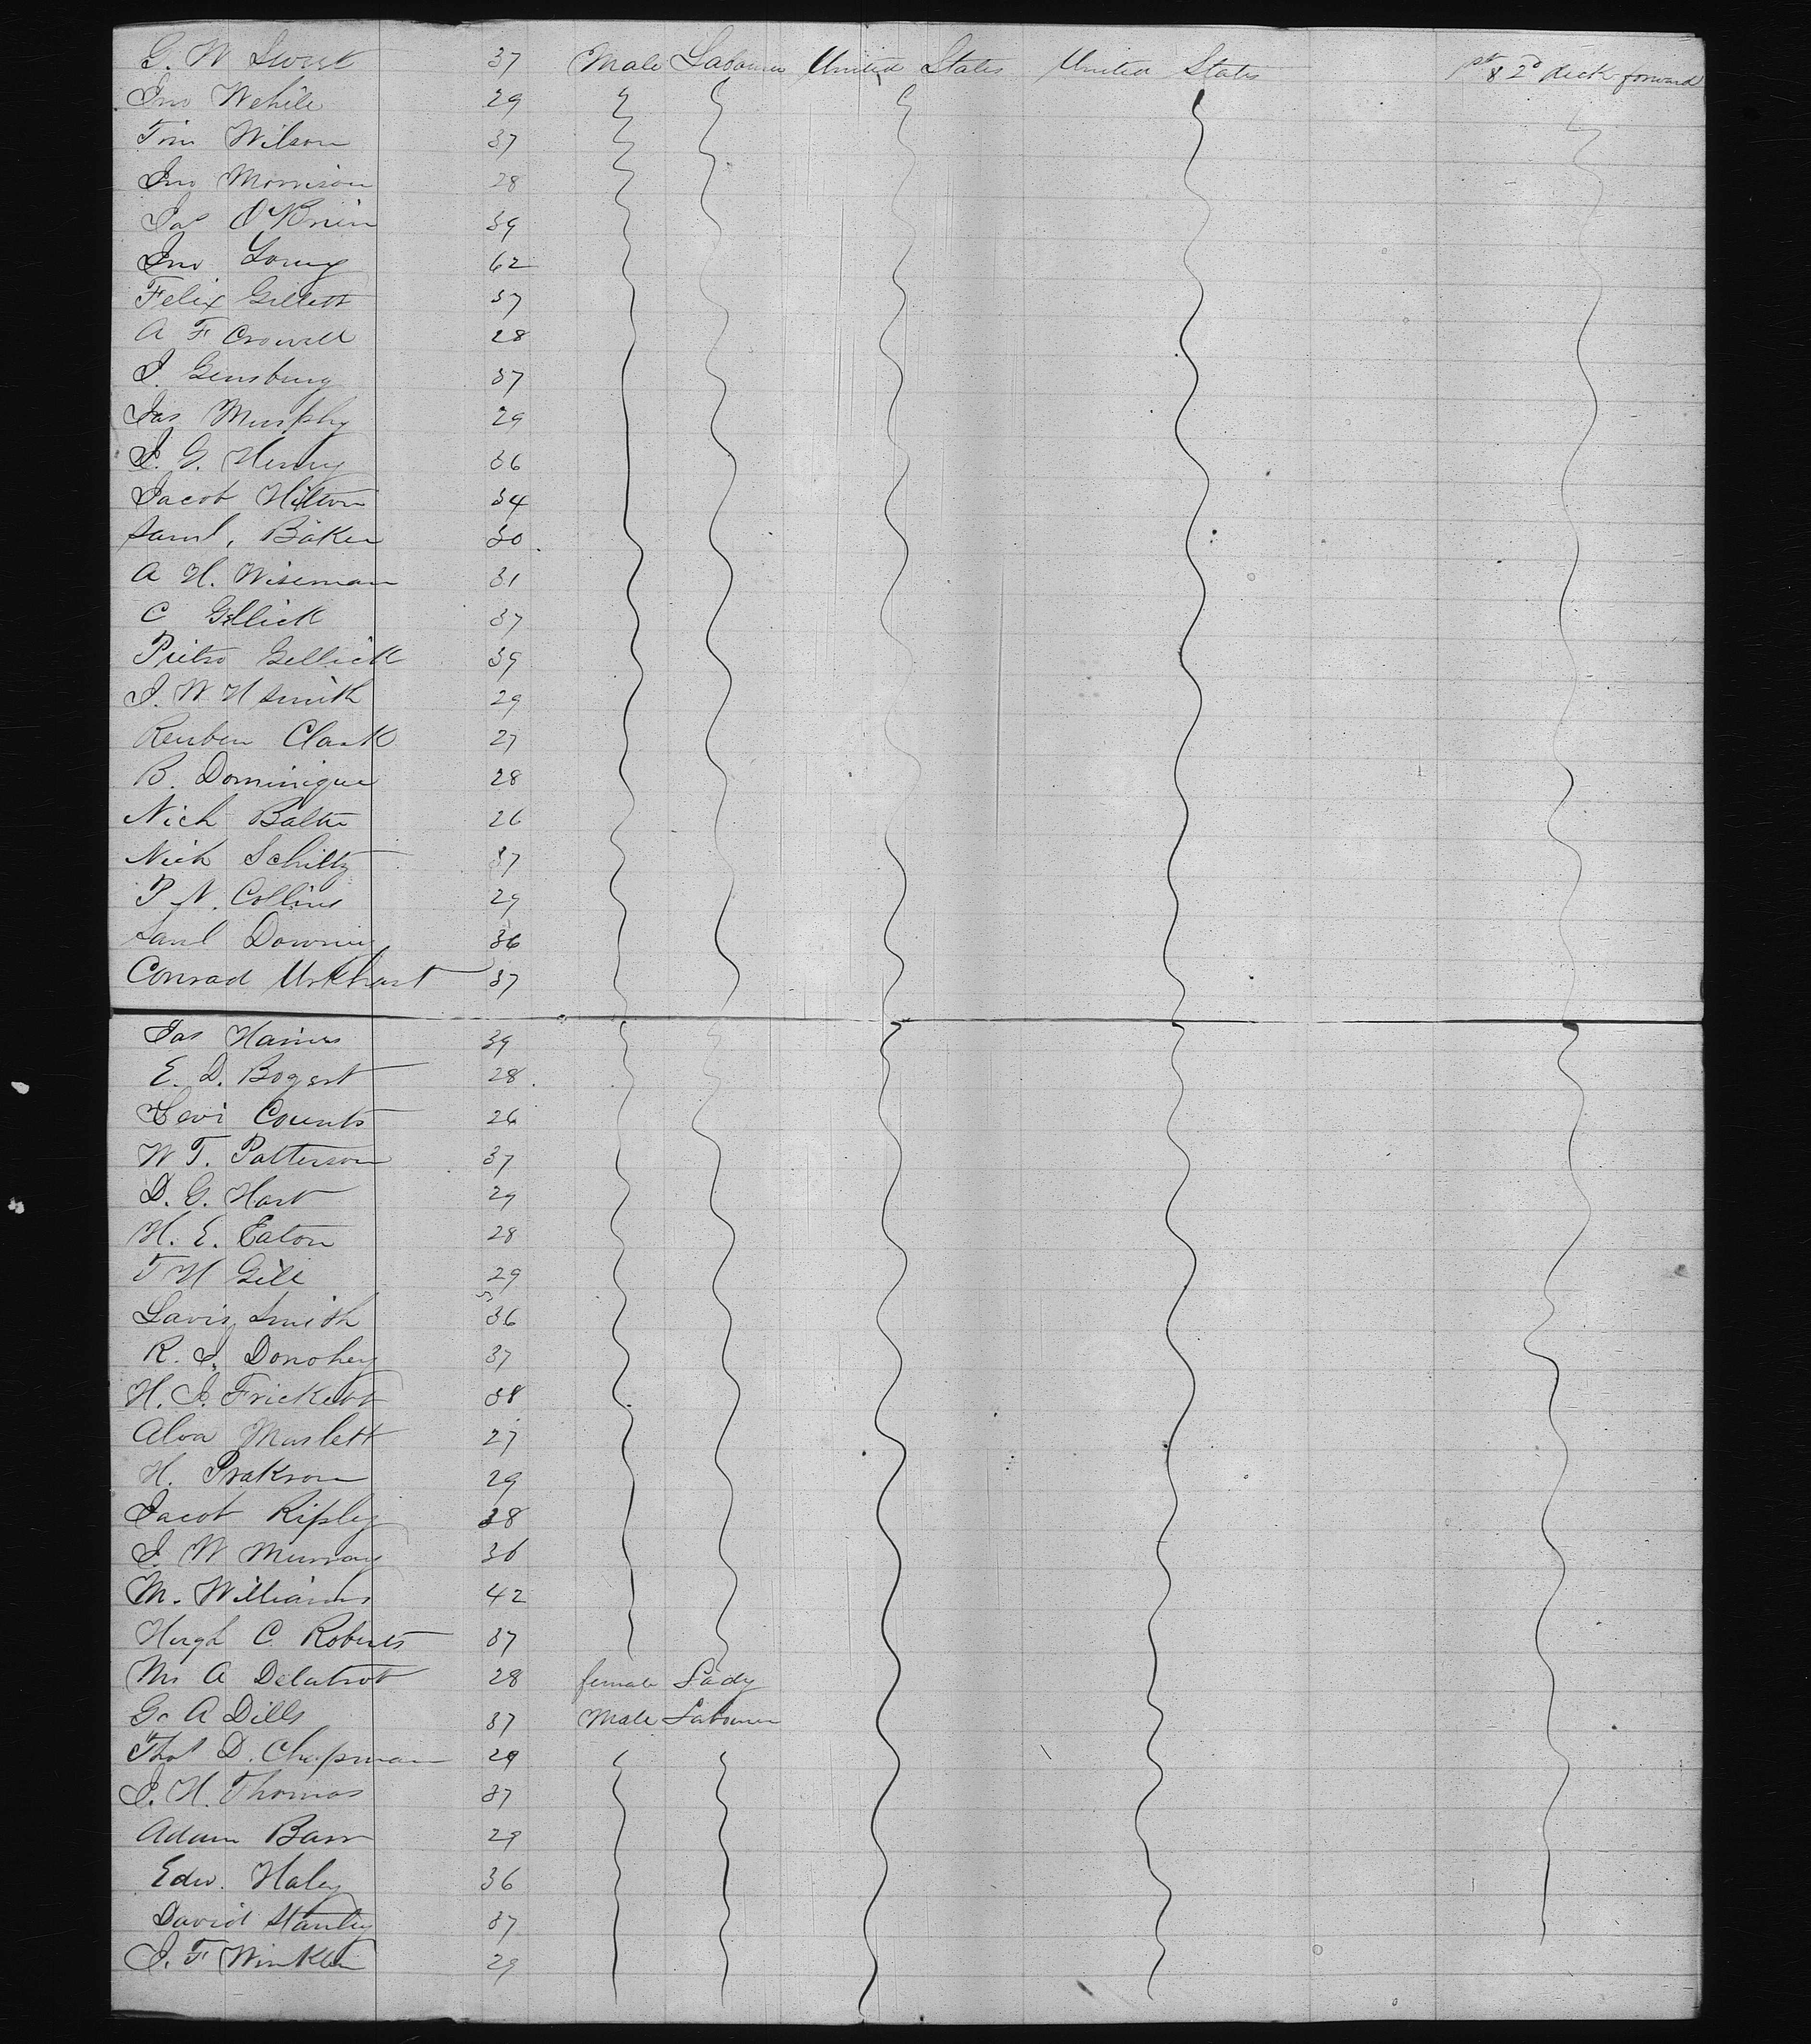 G. W Swist 37 Male Labourer United States United States 1st & 2d deck forward
Jno Wehile 29
Tim Wilson 37
Jno Morrison 28
Jas O'Brien 39
Jno Young 62
Felix Gillett 37
A F Crowell 28
J. Gensburg 37
Jas Murphy 29
J. G. Henry 36
Jacob Hilton 34
Saml, Baker 30
A H. Wiseman 31
C Gellick 37
Pietro Gellick 39
J. W H Smith 29
Reuben Clark 27
B. Dominique 28
Nich Balke 26
Nick Schiltz 37
P. N. Collins 29
Saml Downing 36
Conrad Urkhart 37
Jas Haines 39
E. D. Bogert 28
Levi Counts 26
W T. Patterson 37
D. G. Hart 29
H. E. Eaton 28
T H Gill 29
Davis Smith 36
R. J. Donohey 37
H. J. Frickett 38
Alva Muslett 27
H. Prakson 29
Jacob Ripley 38
J. W Murray 36
M. Williams 42
Hugh C. Roberts 37
Mrs A Delatrob 28 female Lady
Go A Dills 37 Male Labourer
Thos D. Chapman 29
J. H. Thomas 37
Adam Barr 29
Edw. Haley 36
David Stanley 37
J. F Winkler 29